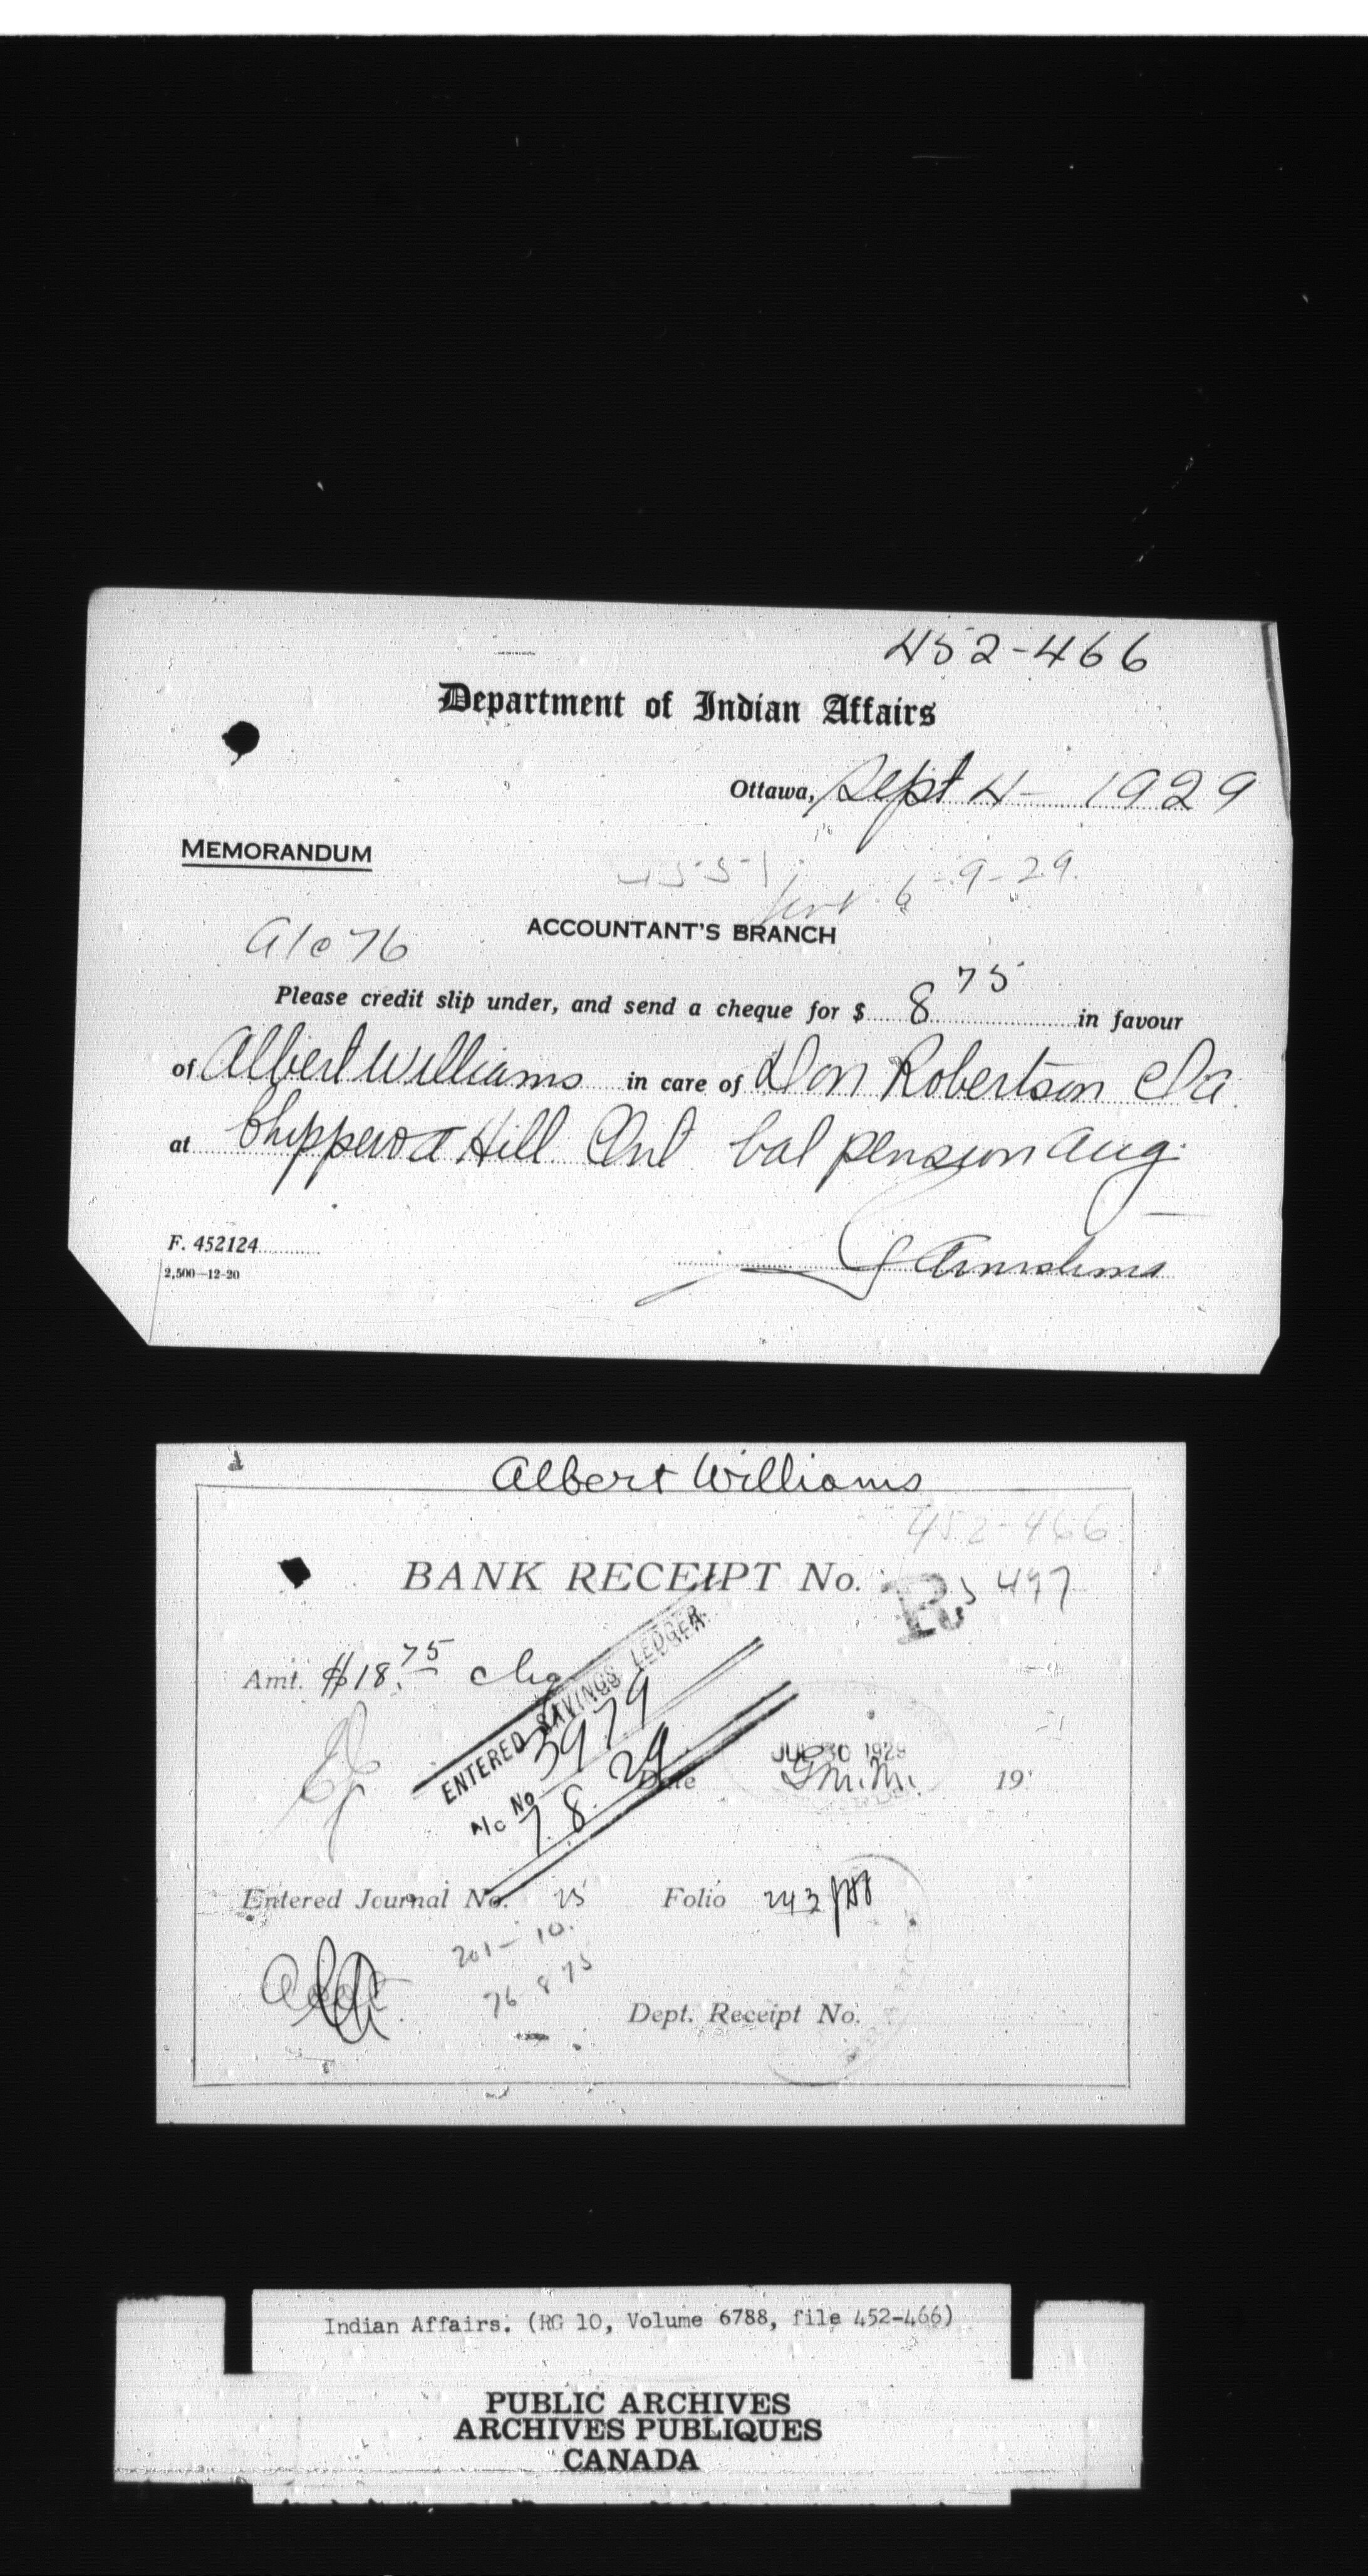 452-466
Department of Indian Affairs
Ottawa, Sept 4 - 1929
MEMORANDUM
6-9-29.
ACCOUNTANT'S BRANCH
a/c 76
Please credit slip under, and send a cheque for $ 8 75 in favour
of Albert Williams in care of Don Robertson
at Chippewa Hill Ont bal pension Aug.
F. 452124
2,500—12-20
Albert Williams
452-466
BANK RECEIPT No. R. 5497
Amt. $18.75
ENTERED SAVINGS LEDGER
A/c No 3979
7.8.29
Date JUL 30 1929 19
Entered Journal No. 25 Folio 243
201-10.
76 8 75
Dept. Receipt No.
Indian Affairs. (RG 10, Volume 6788, file 452-466)
PUBLIC ARCHIVES
ARCHIVES PUBLIQUES
CANADA